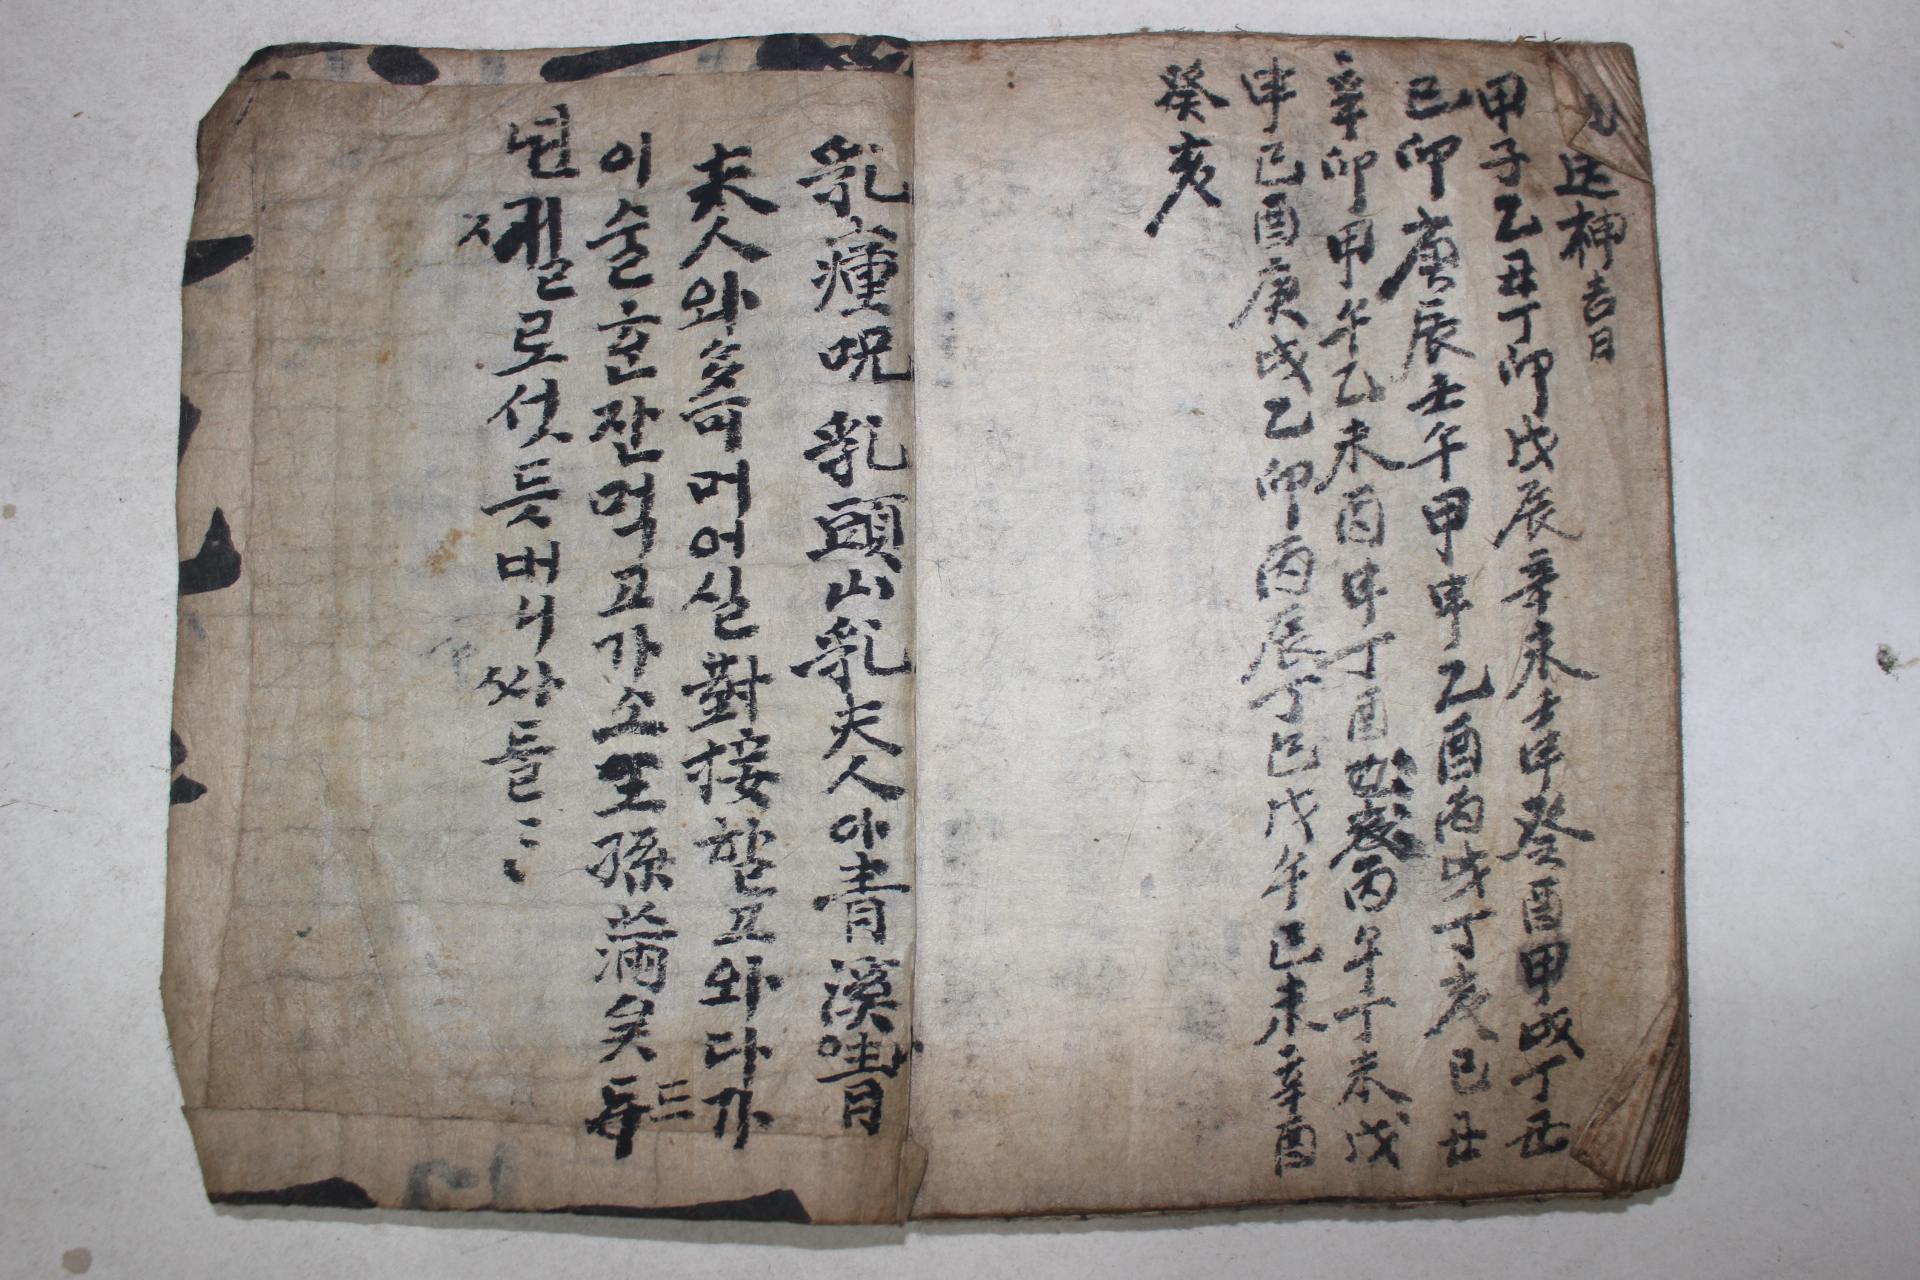 送神吉日
甲子乙丑丁卯戊辰辛未壬申癸酉甲戌丁丑
己卯庚辰壬午甲申乙酉丙戌丁亥己丑
辛卯甲午乙未酉申丁酉丙午丁未戊
申己酉庚戌乙卯丙辰丁巳戊午己未辛酉
癸亥
乳瘇呪 乳頭山乳夫人아靑溪
夫人와 머어실對接할고와다가
이술한잔먹고가소王孫滿矣
로섯듯머니 들